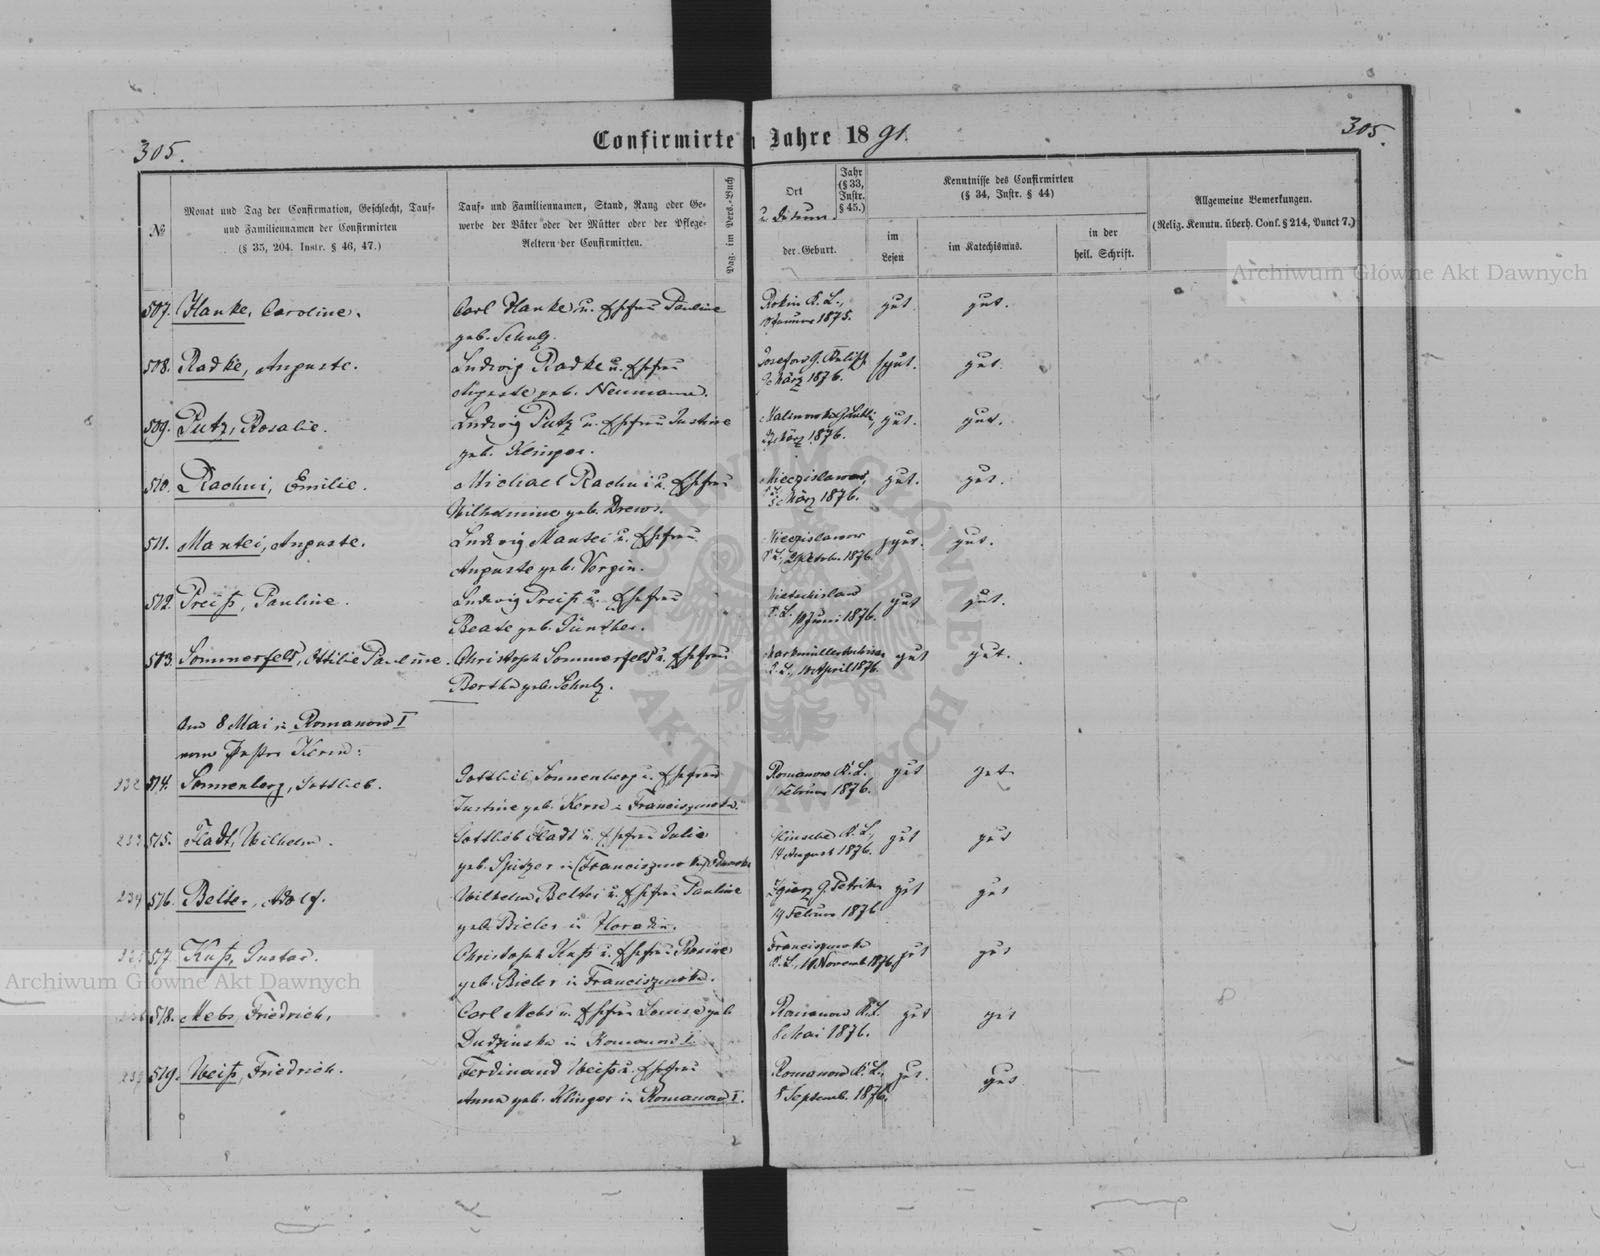 305.
Confirmirte n Jahre 1891.
305.
№
Monat und Tag der Confirmation, Geschlecht, Tauf-
und Familiennamen der Confirmirten
(§ 35, 204. Instr. § 46, 47.)
Tauf- und Familiennamen, Stand, Rang oder Ge-
werbe der Väter oder der Mütter oder der Pflege-
Aeltern der Confirmirten.
Pag. im Pers.-Buch
Ort
u. Datum
der Geburt.
Jahr
(§ 33,
Instr.
§ 45.)
Kenntnisse des Confirmirten
(§ 34, Instr. § 44)
im
Lesen
im Katechismus.
in der
heil. Schrift.
Allgemeine Bemerkungen.
(Relig. Kenntn. überh. Conf. § 214, Punct 7.)
Archiwum Główne Akt Dawnych
507. Hanke, Caroline. Carl Hanke u. Ehefrau Pauline K. L., gut. gut.
geb. Schulz. Januar 1875.
508. Radke, Auguste. Ludwig Radke u. Ehefrau gut. gut.
Auguste geb. Neumann. März 1876.
509. Putz, Rosalie. Ludwig Putz u. Ehefrau Justine gut. gut.
geb. Klinger. März 1876.
510. Rachui, Emilie. Michael Rachui u. Ehefrau Mieczislawow, gut. gut.
Wilhelmine geb. Drews. März 1876.
511. Mantei, Auguste. Ludwig Mantei u. Ehefrau Mieczislawow gut. gut.
Auguste geb. Vergin. 1876.
512. Preiß, Pauline. Ludwig Preiß u. Ehefrau gut gut.
Beate geb. Günther. K. L. 10 Juni 1876.
513. Sommerfeld, Ottilie Pauline. Christoph Sommerfeld u. Ehefrau gut gut.
Bertha geb. Schulz. K. L., 10 April 1876.
den 8 Mai in Romanow I
vom Pastor Kersn:
232 514. Sonnenberg, Gottlieb. Gottlieb Sonnenberg u. Ehefrau Romanow K. L. gut gut.
Justine geb. Kern in Franciszmota. Februar 1876.
233 515. Fladt, Wilhelm. Gottlieb Fladt u. Ehefrau Julie K. L., gut gut
geb. Spitzer in (Franciszmota) 14 August 1876.
234 516. Belter, Adolf. Wilhelm Belter u. Ehefrau Pauline Zgierz G. Petrikau gut gut
geb. Bieler in Horodin. 14 Februar 1876
235 517. Kuß, Gustav. Christoph Kuß u. Ehefrau Rosine Franciszmota gut gut
geb. Bieler in Franciszmota. K. L., 10 Novemb. 1876.
Archiwum Główne Akt Dawnych
518. Mebs, Friedrich. Carl Mebs u. Ehefrau Louise geb. Romanow K. L. gut gut
Dudzinska in Romanow I. Mai 1876.
519. Weiß, Friedrich. Ferdinand Weiß u. Ehefrau Romanow K. L., gut. gut
Anna geb. Klinger in Romanow I. Septemb. 1876.